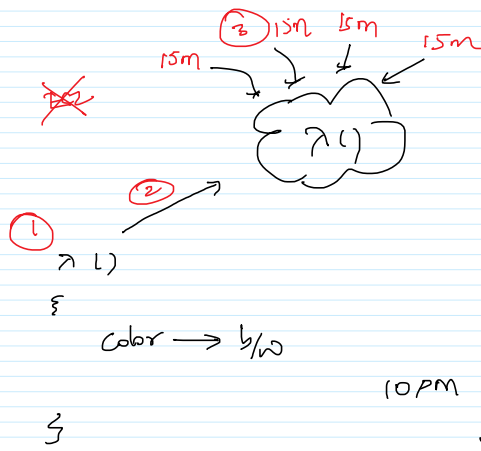 3 15m 15m
15m 15m
EC2
λ ()
2
1
λ ()
{
Color → b/w
10 PM
}